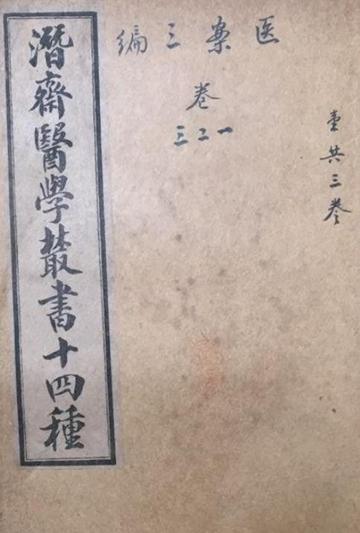 医案三编
卷
一二三
壹共三卷
潛齋醫學叢書十四種